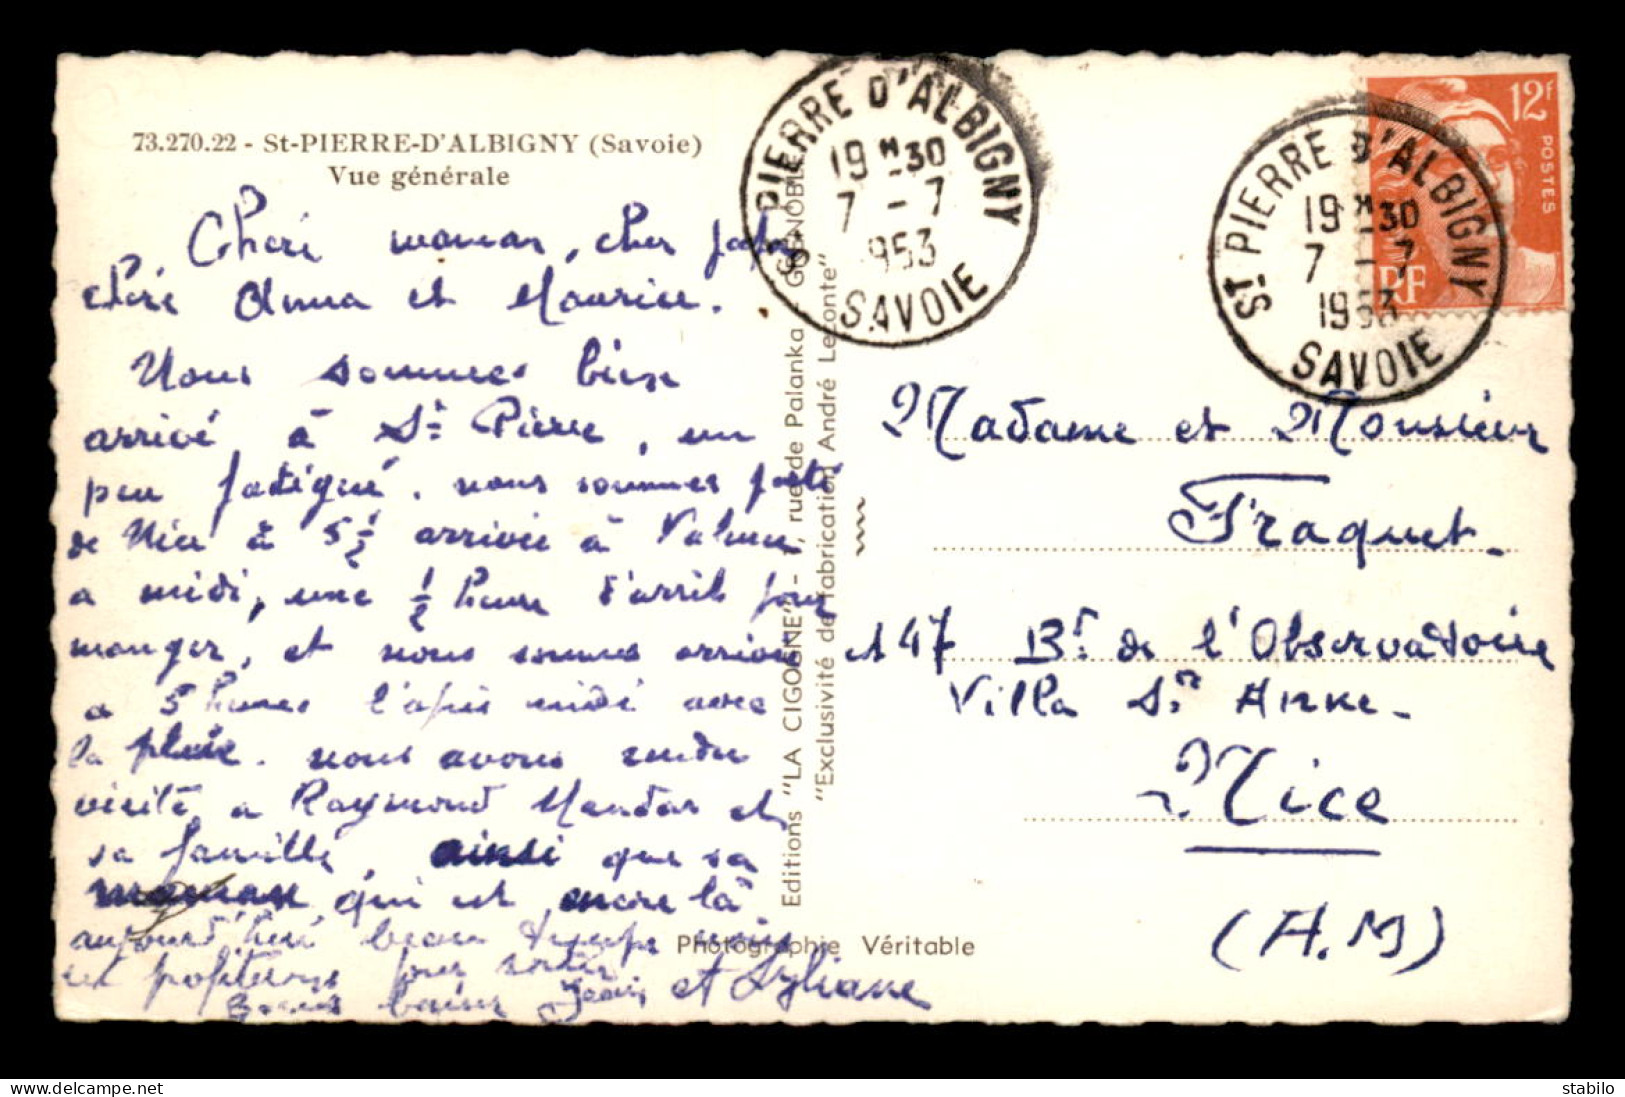 73.270.22 - St-PIERRE-D'ALBIGNY (Savoie)
Vue générale
Cheri maman, cher papa
chère Anna et Maurice.
Nous sommes bien
arrivé à St Pierre, un
peu fatigué. nous sommes parti
de Nice à 5 ½ arrivée à
a midi, une ½ heure d'arrêt pour
manger, et nous sommes arrivée
a 5 heures l'après midi avec
la pluie. nous avons rendu
visite a Raymond et
sa famille, ainsi que sa
maman qui est encore là.
aujourd'hui beau temps nous
et profiterons pour sortir
Bons baisers Jean et Lyliane
Editions "LA CIGOGNE" - 1, rue de Palanka - GRENOBLE
"Exclusivité de fabrication André Leconte"
Photographie Véritable
ST PIERRE D'ALBIGNY
19 H 30
7 - 7
1953
SAVOIE
ST PIERRE D'ALBIGNY
19 H 30
7 - 7
1953
SAVOIE
12F
POSTES
RF
Madame et Monsieur
Fraquet.
147 Bd de l'Observatoire
Villa Ste Anne.
Nice
(A.M)
stabilo
www.delcampe.net